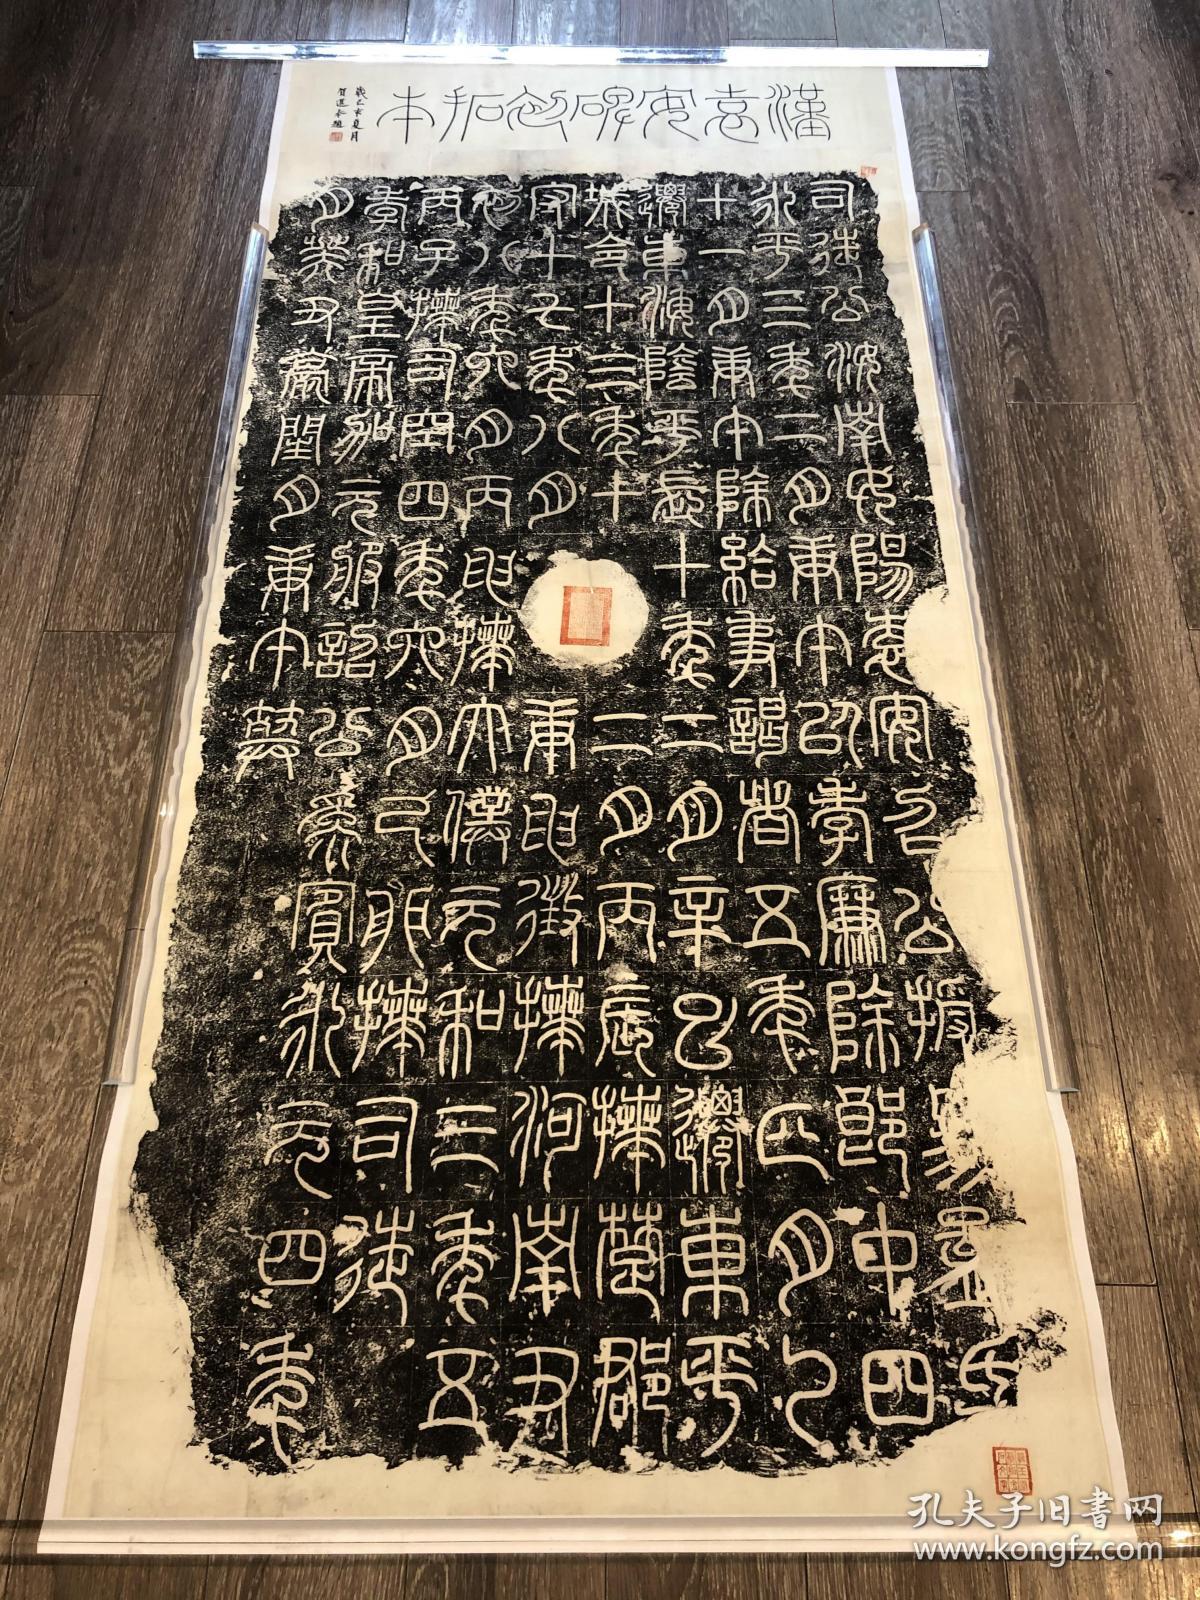 漢袁安碑初拓本
歲亥夏月
題
司徒公汝南女陽袁安召公授易孟氏
永平三年二月庚午以孝廉除郎中四
十一月庚午除給事謁者五年正月乙
遷東海陰平長十年二月辛巳遷東平
城令十三年十二月丙辰拜楚郡
守十七年八月庚申徵拜河南尹
初八年六月丙申拜太僕元和三年五
丙子拜司空四年六月己卯拜司徒
孝和皇帝加元服詔公為賓永元四年
月癸丑薨閏月庚午葬
孔夫子旧書网
www.kongfz.com